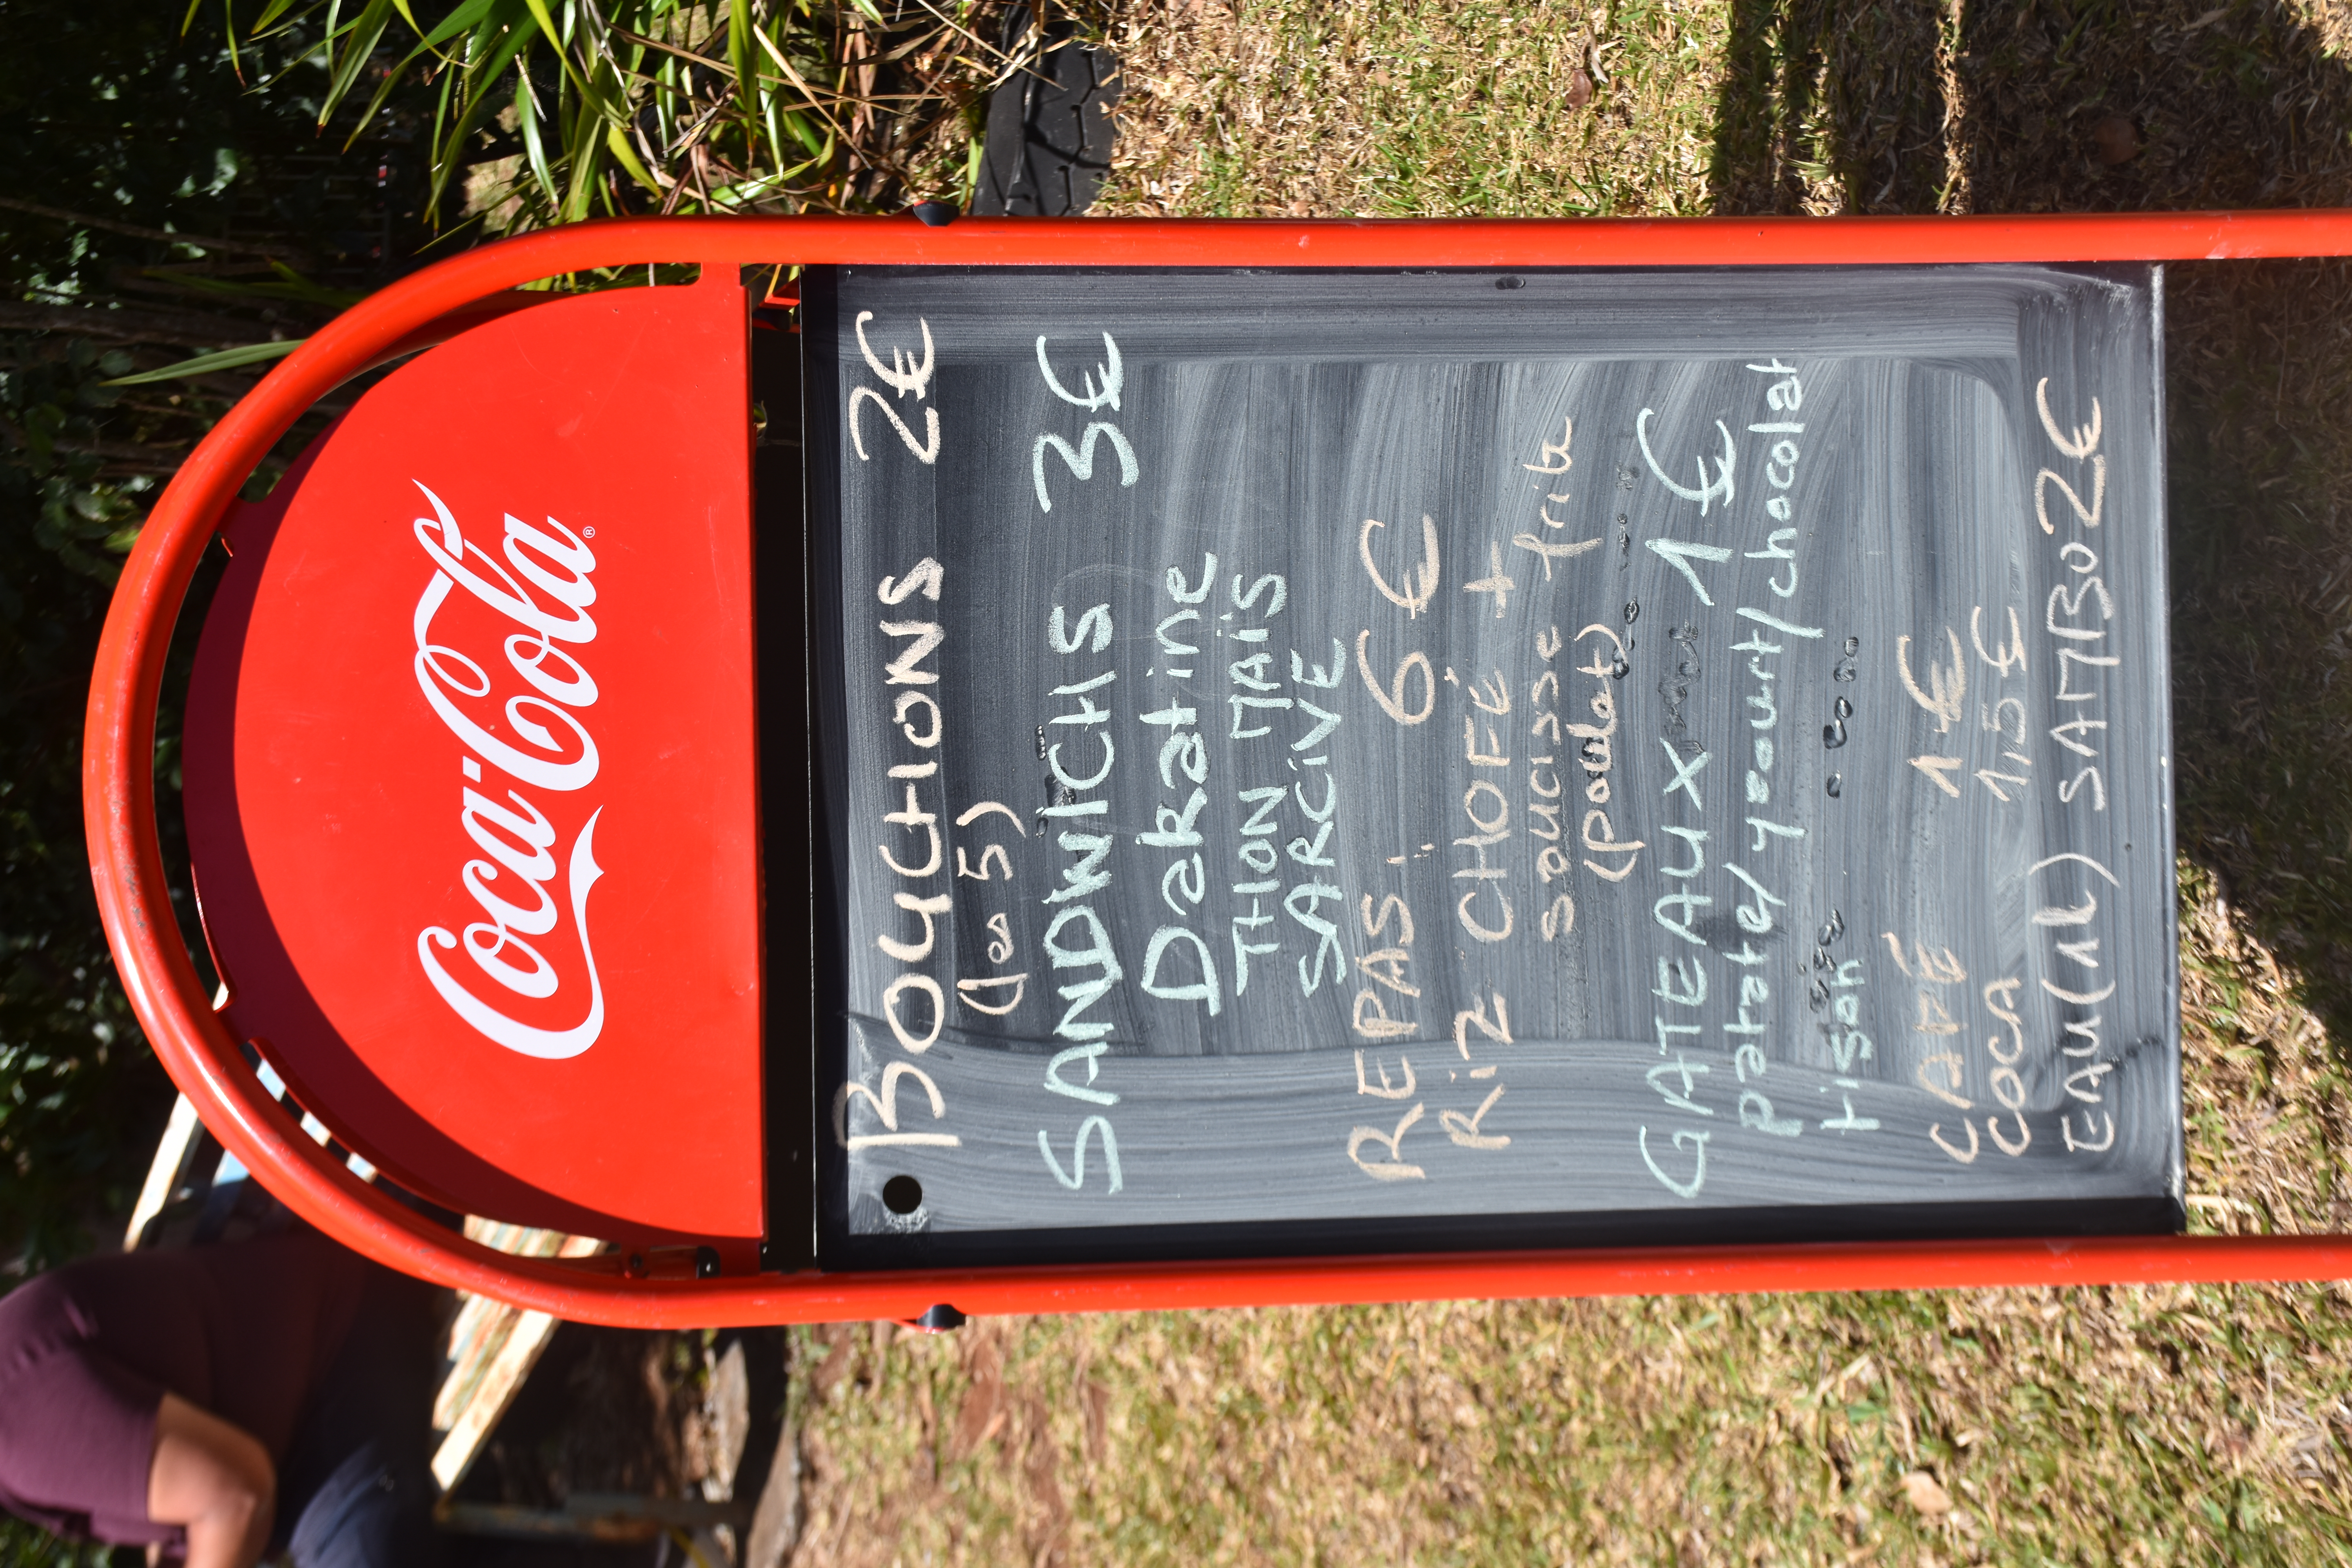 Coca-Cola®
BOUCHONS 2€
(les 5)
SANDWICHS 3€
Dakatine
THON MAÏS
SARCIVE
REPAS 6€
RiZ CHOFÉ +
saucisse frite
(poulet)
GATEAUX 1€
patate/yaourt/chocolat
tison
CAFÉ 1€
COCA 1,5€
EAU(1L) SAMBO 2€